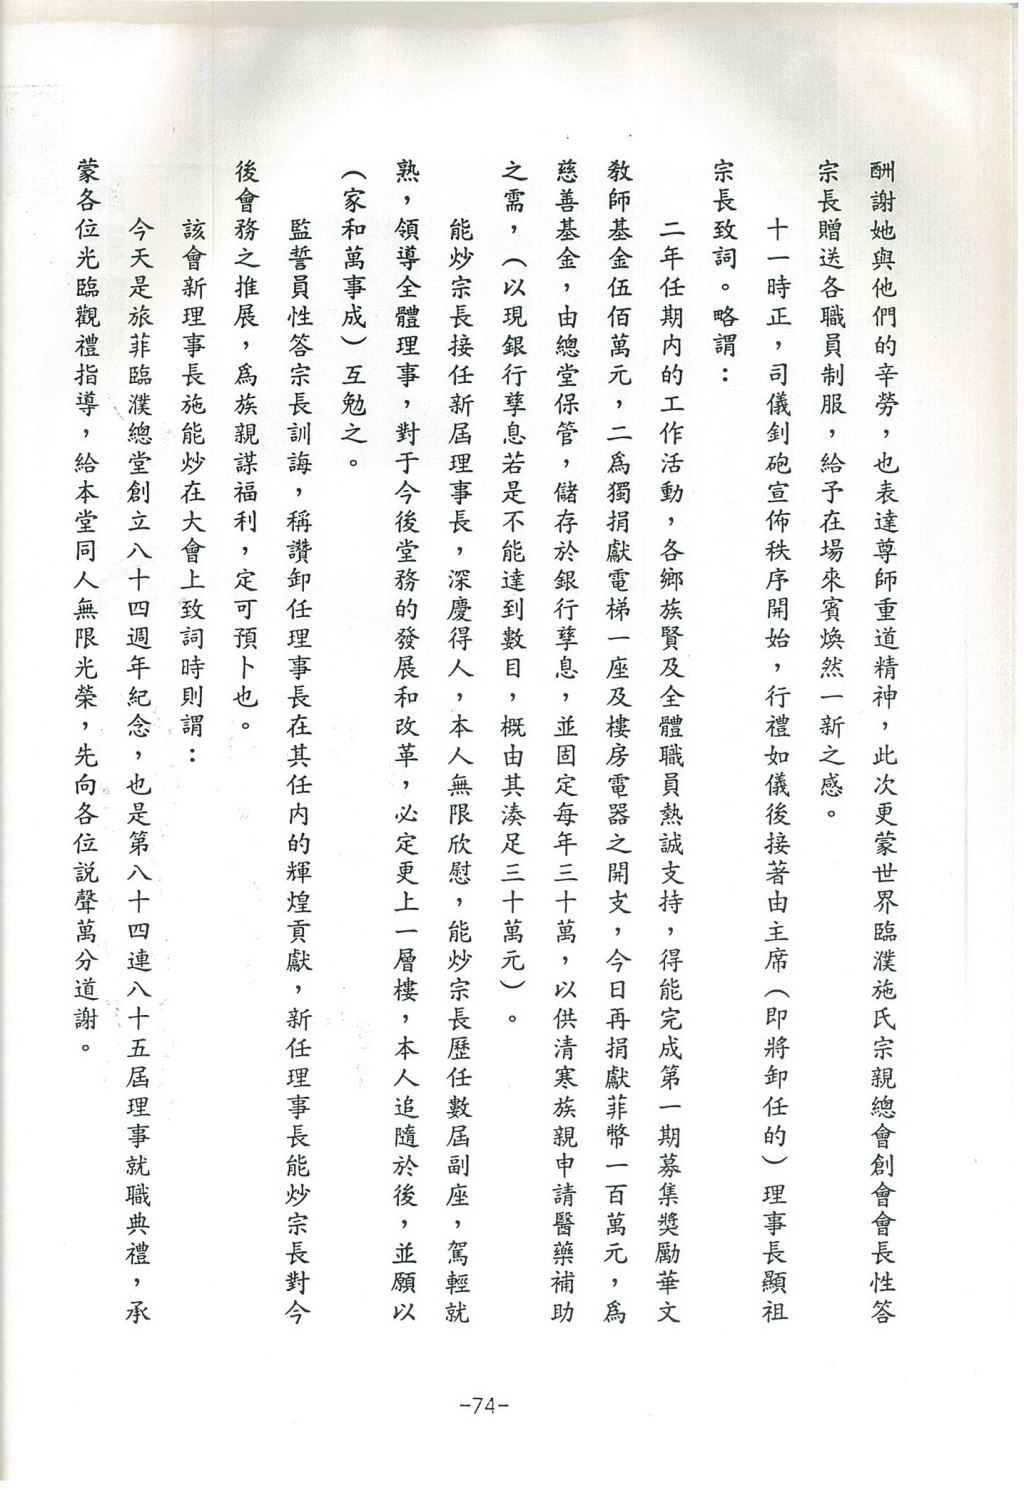 酬謝她與他們的辛勞，也表達尊師重道精神，此次更蒙世界臨濮施氏宗親總會創會會長性答
宗長贈送各職員制服，給予在場來賓煥然一新之感。
十一時正，司儀釗砲宣佈秩序開始，行禮如儀後接著由主席（即將卸任的）理事長顯祖
宗長致詞。略謂：
二年任期内的工作活動，各鄉族賢及全體職員熱誠支持，得能完成第一期募集獎勵華文
教師基金伍佰萬元，二爲獨捐獻電梯一座及樓房電器之開支，今日再捐獻菲幣一百萬元，爲
慈善基金，由總堂保管，儲存於銀行孳息，並固定每年三十萬，以供清寒族親申請醫藥補助
之需，（以現銀行孳息若是不能達到數目，概由其湊足三十萬元）。
能炒宗長接任新屆理事長，深慶得人，本人無限欣慰，能炒宗長歷任數屆副座，駕輕就
熟，領導全體理事，對于今後堂務的發展和改革，必定更上一層樓，本人追隨於後，並願以
（家和萬事成）互勉之。
監誓員性答宗長訓誨，稱讚卸任理事長在其任内的輝煌貢獻，新任理事長能炒宗長對今
後會務之推展，爲族親謀福利，定可預卜也。
該會新理事長施能炒在大會上致詞時則謂：
今天是旅菲臨濮總堂創立八十四週年紀念，也是第八十四連八十五屆理事就職典禮，承
蒙各位光臨觀禮指導，給本堂同人無限光榮，先向各位説聲萬分道謝。
-74-